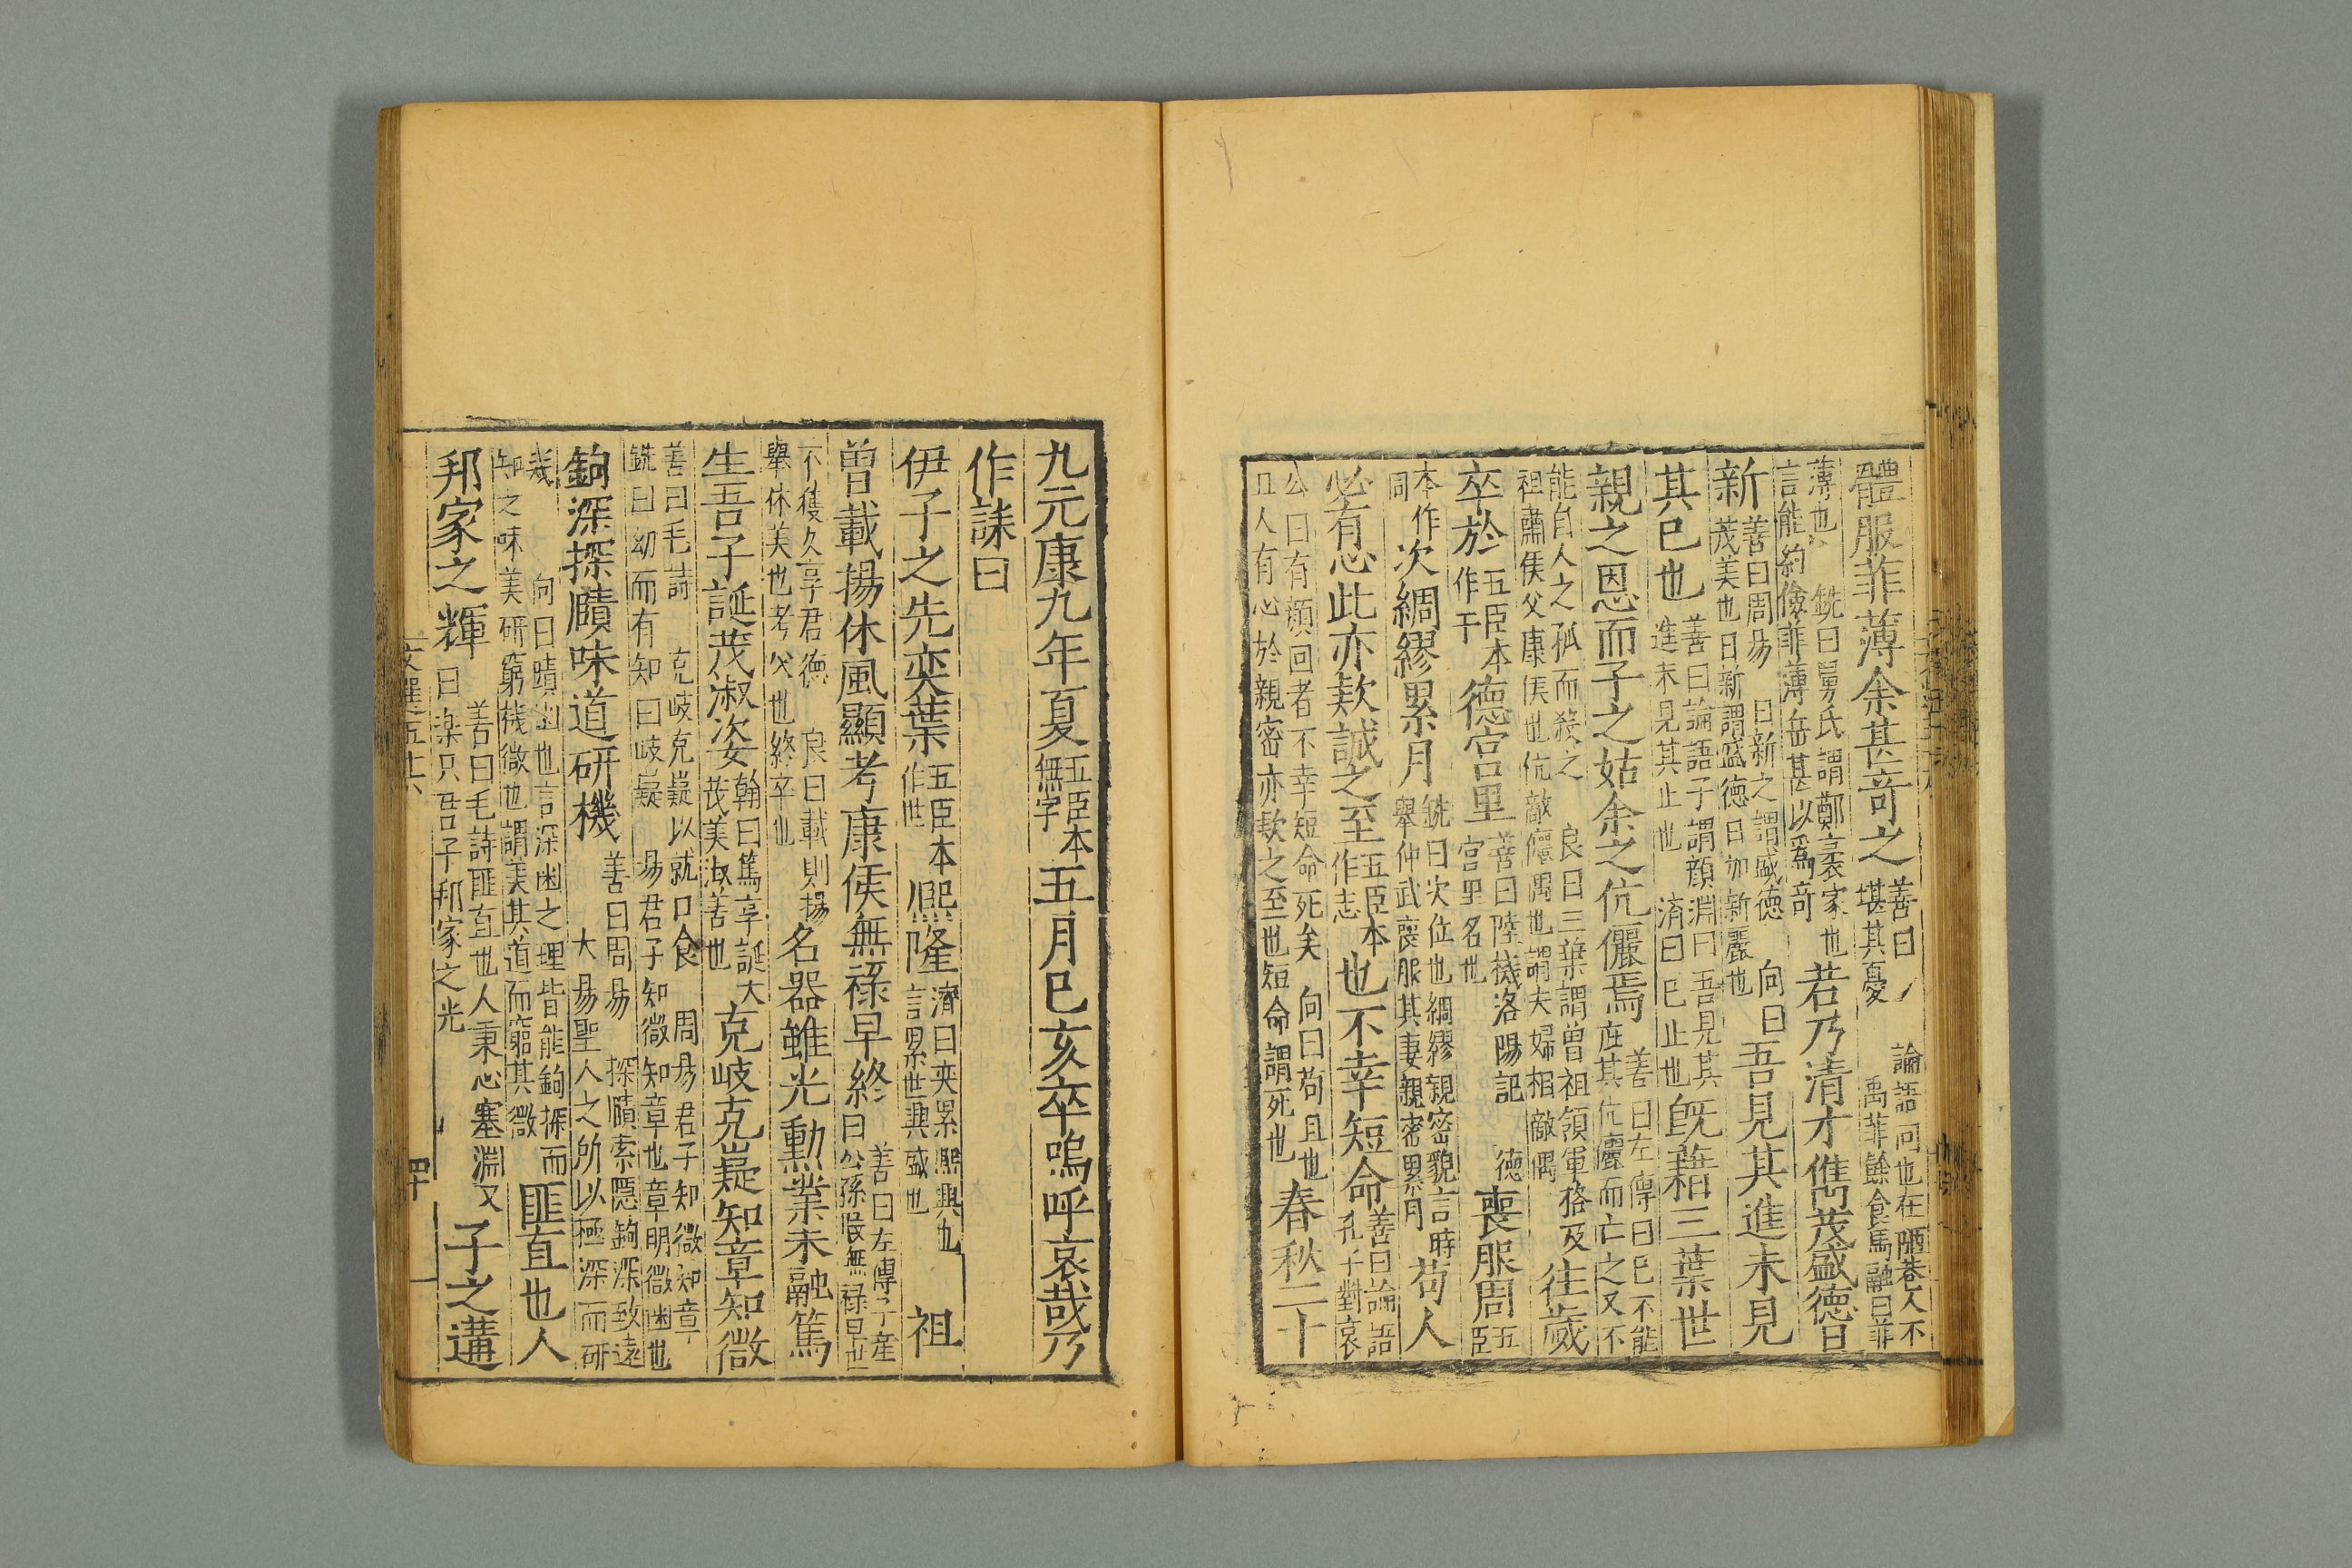 體服菲薄余甚奇之善曰論語回也在陋巷人不
堪其憂禹菲餘食馬融曰菲
薄也銑曰舅氏謂鄭袤家也
言能約儉菲薄岳甚以爲奇若乃清才儁茂盛德日
新善曰周易曰新之謂盛德向曰
茂美也日新謂盛德日加新麗也吾見其進未見
其已也善曰論語子謂顏淵曰吾見其
進未見其止也濟曰已止也旣藉三葉世
親之恩而子之姑余之伉儷焉善曰左傳曰已不能
庇其伉儷而亡之又不
能自人之孤而殺之良曰三葉謂曾祖領軍格及
祖蕭侯父康侯也伉敵儷偶也謂夫婦相敵偶往歲
卒於五臣本
作干德宮里善曰陸機洛陽記德
宮里名也喪服周五
臣
本作
同次綢繆累月銑曰次位也綢繆親密貌言時
舉仲武喪服其妻親密累月苟人
必有心此亦款誠之至五臣本
作志也不幸短命善曰論語
孔子對哀
公曰有顏回者不幸短命死矣向曰苟且也
且人有心於親密亦款之至也短命謂死也春秋二十
九元康九年夏五臣本
無字五月巳亥卒嗚呼哀哉乃
作誄曰
伊子之先奕葉五臣本
作世熙隆濟曰奕累熙興也
言累世興盛也祖
曾載揚休風顯考康侯無祿早終善曰左傳子產
曰公孫段無祿早世
不獲久享君德良曰載則揚
舉休美也考父也終卒也名器雖光勳業未融篤
生吾子誕茂淑姿翰曰篤享誕大
茂美淑善也克岐克嶷知章知微
善曰毛詩克岐克嶷以就口食周易君子知微知章
銑曰幼而有知曰岐嶷易君子知微知章也章明微幽也
鉤深探賾味道研機善曰周易探賾索隱鉤深致遠
大易聖人之所以極深而研
幾向曰賾幽也言深幽之理皆能鉤探而
知之味美研窮機微也謂美其道而窮其微匪直也人
邦家之輝善曰毛詩匪直也人秉心塞淵又
曰樂只君子邦家之光子之遘
文選五十六
四十